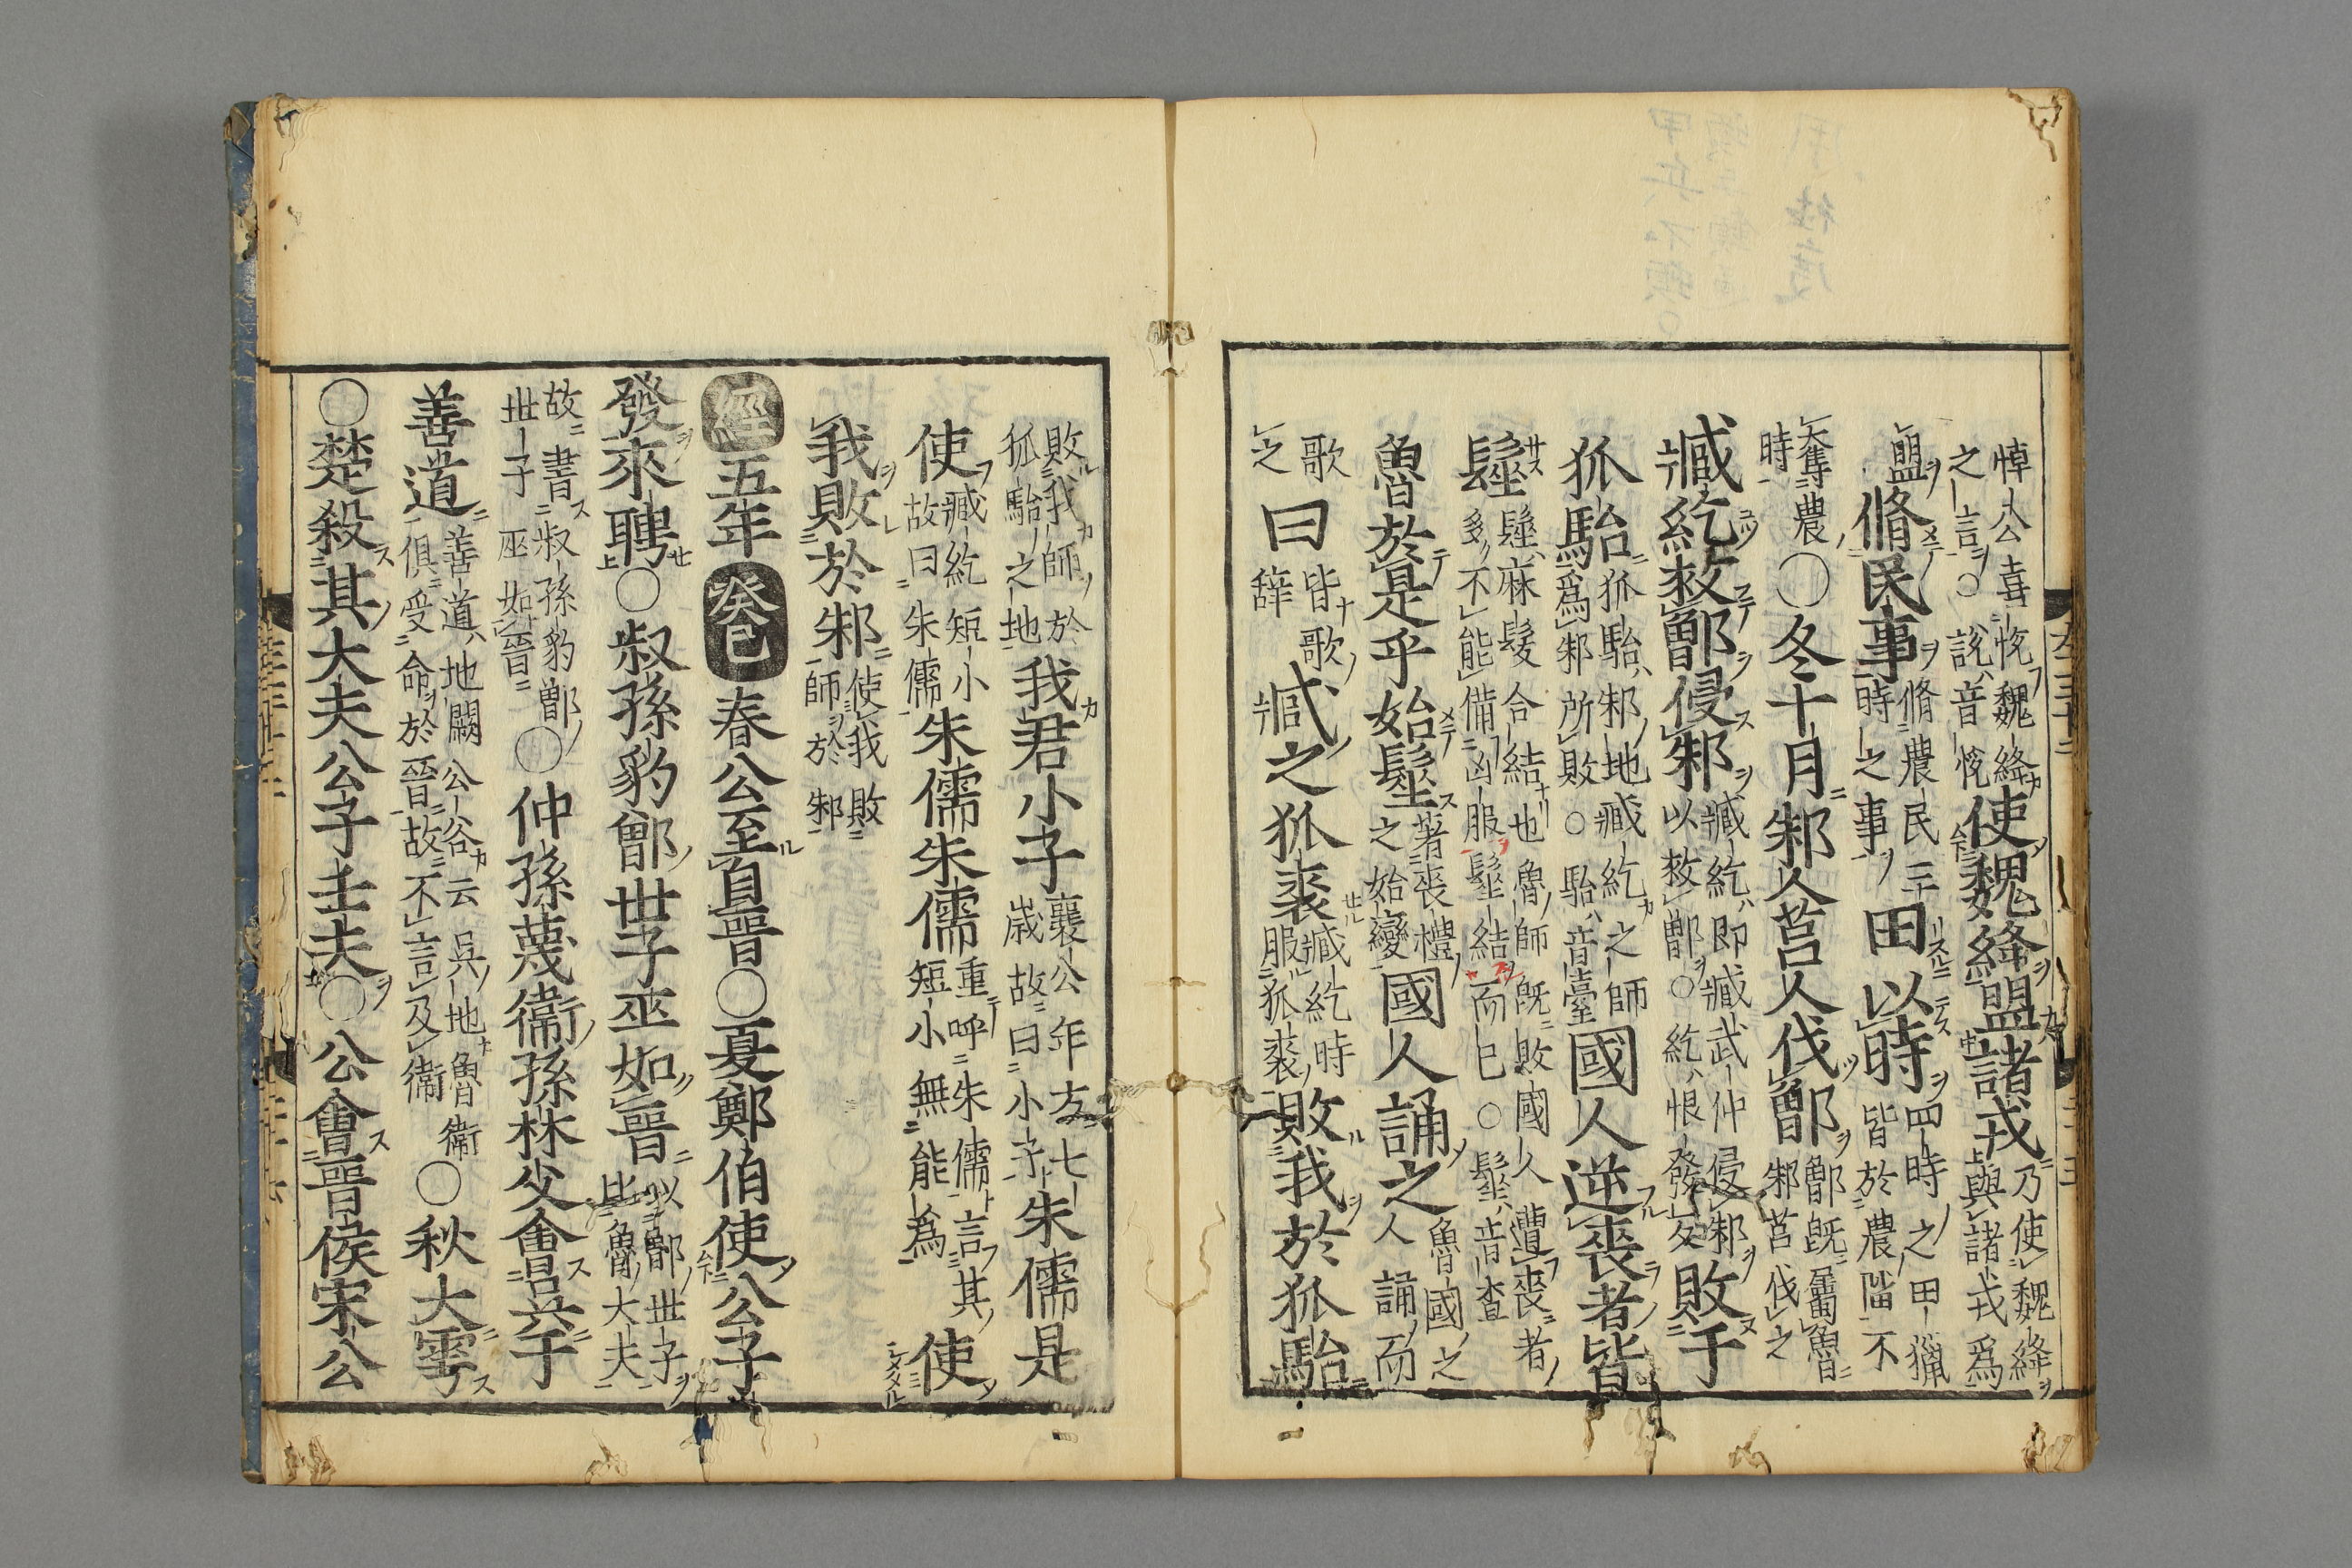 悼公喜悅魏絳之言○說音悅使魏絳盟諸戎乃使魏絳與諸戎爲
盟脩民事脩農民三時之事田以時四時之田獵皆於農隙不
奪農時○冬十月邾人莒人伐鄫鄫既屬魯邾莒伐之
臧紇救鄫侵邾臧紇即臧武仲侵邾以救鄫○紇恨發反敗于
狐駘狐駘邾地臧紇之師爲邾所敗○駘音臺國人逆喪者皆
髽髽麻髮合結也魯師既敗國人遭喪者多不能備凶服髽結而已○髽音查
魯於是乎始髽著喪禮之始變國人誦之魯國之人誦而
歌之曰皆歌辭臧之狐裘臧紇時服狐裘敗我於狐駘
敗我師於狐駘之地我君小子襄公年方七歲故曰小子朱儒是
使臧紇短小故曰朱儒朱儒朱儒重呼朱儒言其短小無能爲使
我敗於邾使我敗師於邾
經五年癸巳春公至自晉○夏鄭伯使公子
發來聘○叔孫豹鄫世子巫如晉以鄫世子比魯大夫
故書叔孫豹鄫世子巫如晉○仲孫蔑衛孫林父會吳于
善道善道地闕公谷云吳地魯衛俱受命於晉故不言及衛○秋大雩
○楚殺其大夫公子壬夫○公會晉侯宋公